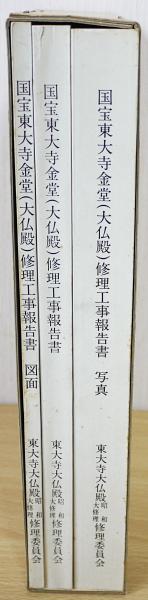 国宝東大寺金堂(大仏殿)修理工事報告書 写真
東大寺大仏殿昭和大修理修理委員会
国宝東大寺金堂(大仏殿)修理工事報告書
東大寺大仏殿昭和大修理修理委員会
国宝東大寺金堂(大仏殿)修理工事報告書 図面
東大寺大仏殿昭和大修理修理委員会